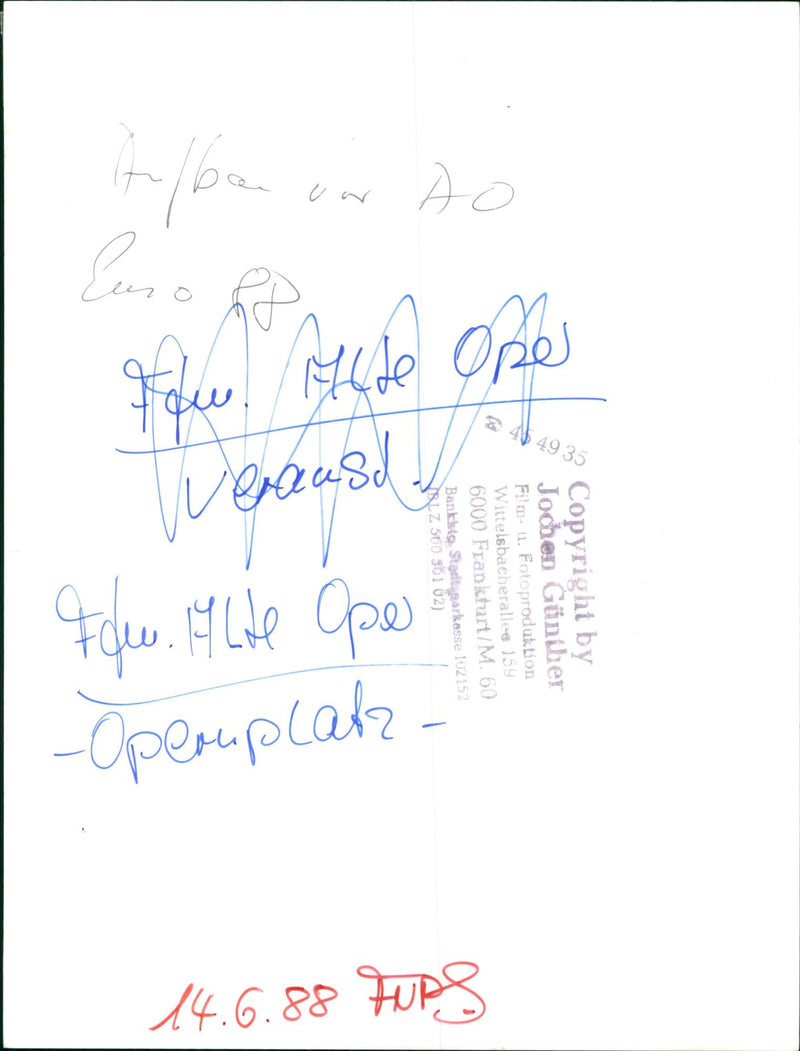 Aufbau vor AO
Euro 88
Ffm. Alte Oper
Veranst.
☎ 45 49 35
Copyright by
Jochen Günther
Film- u. Fotoproduktion
Wittelsbacherallee 159
6000 Frankfurt/M. 60
Bankkto. Stadtsparkasse 102152
(BLZ 500 501 02)
Ffm. Alte Oper
- Opernplatz -
14.6.88 FNP S.